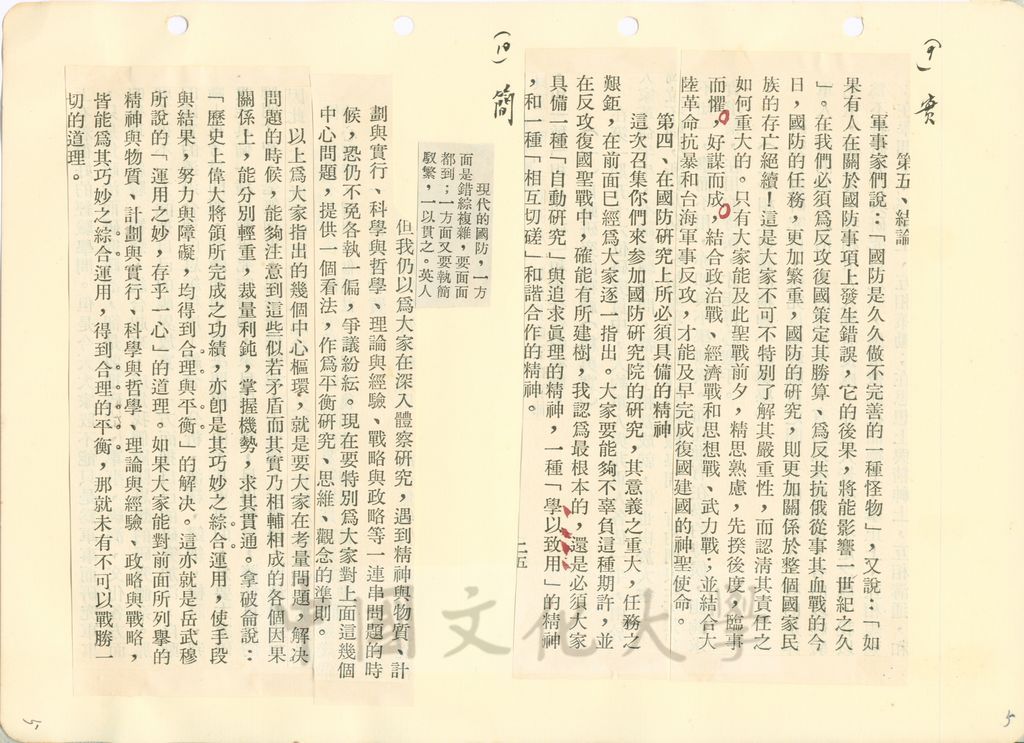 (9) 實
第五、結論
軍事家們說：「國防是久久做不完善的一種怪物」，又說：「如
果有人在關於國防事項上發生錯誤，它的後果，將能影響一世紀之久
」。在我們必須爲反攻復國策定其勝算、爲反共抗俄從事其血戰的今
日，國防的任務，更加繁重，國防的研究，則更加關係於整個國家民
族的存亡絕續！這是大家不可不特別了解其嚴重性，而認清其責任之
如何重大的。只有大家能及此聖戰前夕，精思熟慮，先揆後度，臨事
而懼，好謀而成，結合政治戰、經濟戰和思想戰、武力戰；並結合大
陸革命抗暴和台海軍事反攻，才能及早完成復國建國的神聖使命。
第四、在國防研究上所必須具備的精神
這次召集你們來參加國防研究院的研究，其意義之重大，任務之
艱鉅，在前面已經爲大家逐一指出。大家要能夠不辜負這種期許，並
在反攻復國聖戰中，確能有所建樹，我認爲最根本的，還是必須大家
具備一種「自動研究」與追求眞理的精神，一種「學以致用」的精神
，和一種「相互切磋」和諧合作的精神。
二五
(10) 簡
現代的國防，一方
面是錯綜複雜，要面面
都到；一方面又要執簡
馭繁，一以貫之。英人
但我仍以爲大家在深入體察研究，遇到精神與物質、計
劃與實行、科學與哲學、理論與經驗、戰略與政略等一連串問題的時
候，恐仍不免各執一偏，爭議紛紜。現在要特別爲大家對上面這幾個
中心問題，提供一個看法，作爲平衡研究、思維、觀念的準則。
以上爲大家指出的幾個中心樞環，就是要大家在考量問題，解決
問題的時候，能夠注意到這些似若矛盾而其實乃相輔相成的各個因果
關係上，能分別輕重，裁量利鈍，掌握機勢，求其貫通。拿破侖說：
「歷史上偉大將領所完成之功績，亦卽是其巧妙之綜合運用，使手段
與結果，努力與障礙，均得到合理與平衡」的解決。這亦就是岳武穆
所說的「運用之妙，存乎一心」的道理。如果大家能對前面所列擧的
精神與物質、計劃與實行、科學與哲學、理論與經驗、政略與戰略，
皆能爲其巧妙之綜合運用，得到合理的平衡，那就未有不可以戰勝一
切的道理。
中國文化大學
5
5